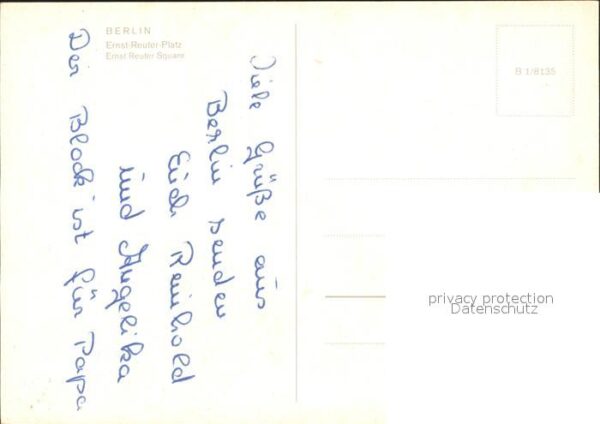 BERLIN
Ernst-Reuter-Platz
Ernst Reuter Square
Viele Grüße aus
Berlin senden
Euch Reinhold
und Angelika
Der Block ist für Papa
B 1/8135
privacy protection
Datenschutz